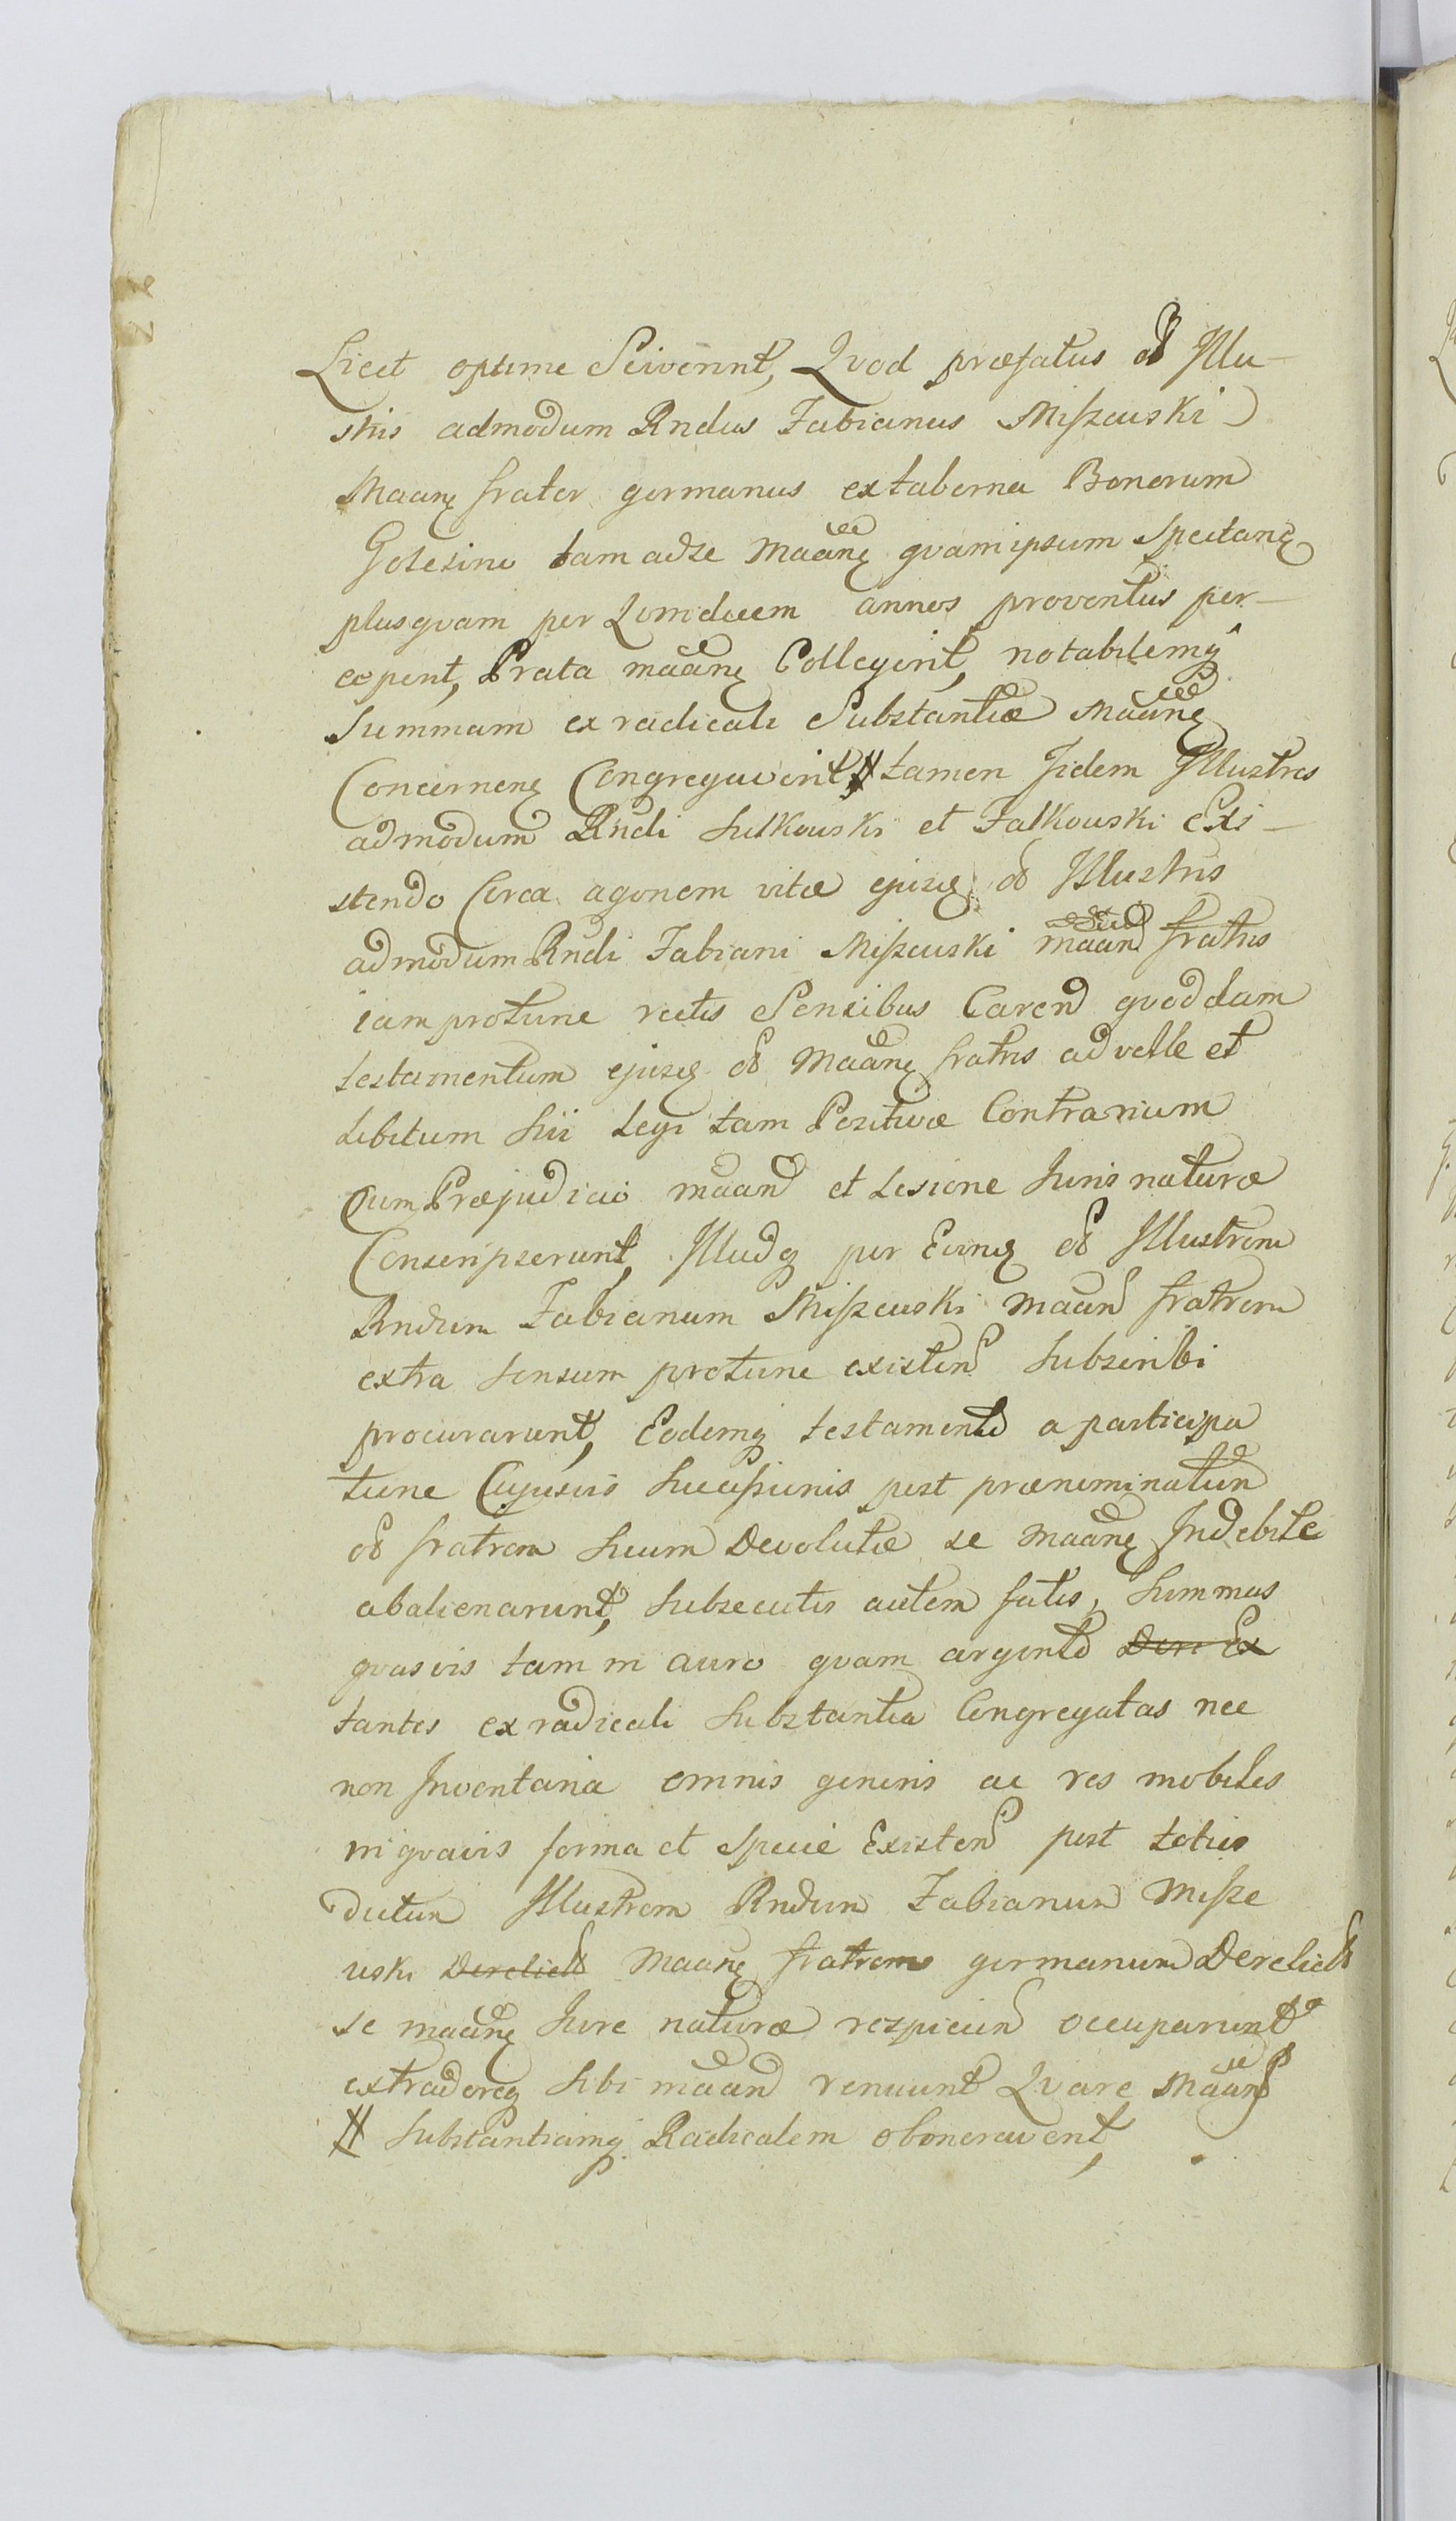 Licet optime Sciverint, Qvod præfatus ol Illu-
stris admodum Rndus Fabianus Miszewski
Maane frater germanus ex taberna Bonorum
tam ad se Maane qvam ipsum Spectane
plusqvam per Qvindecem annos proventus per-
ceperit, Prata maane Collegerit, notabilemq
Summam ex radicali Substantiæ Maane
Concernene Congregaverit, # tamen Iidem Illustres
admodum Rndi Sulkowski et Falkowski Exi-
stendo Circa agonem vitæ ejusq ol Illustris
admodum Rndi Fabiani Miszewski maan fratris
iam protunc rectis Sensibus Caren qvoddam
testamentum ejusq ol Maane fratris ad velle et
Libitum Sui Legi tam Positivæ Contrarium
Cum Præjudicio maan et Lesione Juris naturæ
Conscripserunt, Illudq per Eunq ol Illustrem
Rndum Fabianum Miszewski maan fratrem
extra Sensum protunc existen Subscribi
procurarunt, Eodemq testamento a participa
tione Cujusvis Successionis post prænominatum
ol fratrem Suum Devolutæ se Maane Indebite
abalienarunt, Subsecutis autem fatis, Summas
qvasvis tam in auro qvam argento Dere Ex
tantes ex radicali Substantia Congregatas nec
non Inventaria omnis generis ac res mobiles
in qvavis forma et Specie Existen post toties
dictum Illustrem Rndum Fabianum Misze
wski Derelict Maane fratrem germanum Derelict
se maane Jure naturæ respicien occuparunt
extradereq Sibi maan renuunt Qvare Maan
# Substantiamq Radicalem oboneraverit,